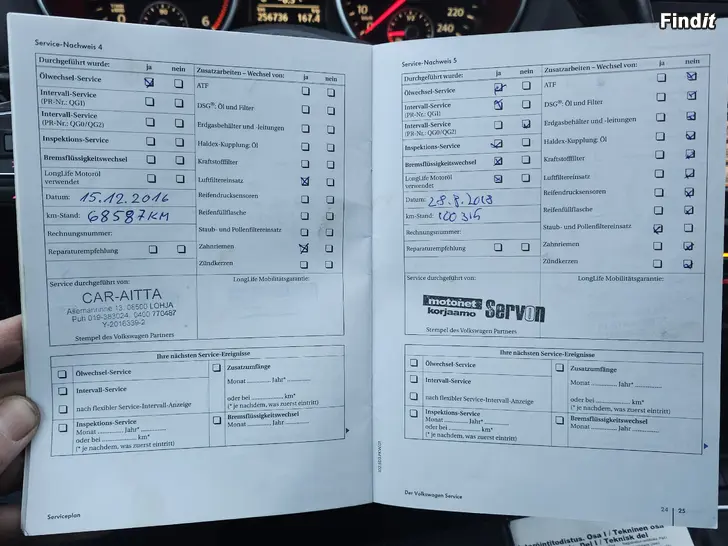 Findit
256736 167.4
Service-Nachweis 4
Durchgeführt wurde: ja nein
Ölwechsel-Service
Intervall-Service
(PR-Nr.: QG1)
Intervall-Service
(PR-Nr.: QG0/QG2)
Inspektions-Service
Bremsflüssigkeitswechsel
LongLife Motoröl
verwendet
Datum: 15.12.2016
km-Stand: 68587KM
Rechnungsnummer:
Reparaturempfehlung
Zusatzarbeiten – Wechsel von: ja nein
ATF
DSG®: Öl und Filter
Erdgasbehälter und -leitungen
Haldex-Kupplung: Öl
Kraftstofffilter
Luftfiltereinsatz
Reifendrucksensoren
Reifenfüllflasche
Staub- und Pollenfiltereinsatz
Zahnriemen
Zündkerzen
Service durchgeführt von:
CAR-AITTA
Allemanninne 13, 08500 LOHJA
Puh 019-383024, 0400 770487
Y-2016339-2
Stempel des Volkswagen Partners
LongLife Mobilitätsgarantie:
Ihre nächsten Service-Ereignisse
Ölwechsel-Service
Intervall-Service
nach flexibler Service-Intervall-Anzeige
Inspektions-Service
Monat Jahr*
oder bei km*
(* je nachdem, was zuerst eintritt)
Zusatzumfänge
Monat Jahr*
oder bei km*
(* je nachdem, was zuerst eintritt)
Bremsflüssigkeitswechsel
Monat Jahr
Serviceplan
Service-Nachweis 5
Durchgeführt wurde: ja nein
Ölwechsel-Service
Intervall-Service
(PR-Nr.: QG1)
Intervall-Service
(PR-Nr.: QG0/QG2)
Inspektions-Service
Bremsflüssigkeitswechsel
LongLife Motoröl
verwendet
Datum: 28.8.2018
km-Stand: 100315
Rechnungsnummer:
Reparaturempfehlung
Zusatzarbeiten – Wechsel von: ja nein
ATF
DSG®: Öl und Filter
Erdgasbehälter und -leitungen
Haldex-Kupplung: Öl
Kraftstofffilter
Luftfiltereinsatz
Reifendrucksensoren
Reifenfüllflasche
Staub- und Pollenfiltereinsatz
Zahnriemen
Zündkerzen
Service durchgeführt von:
motonet
korjaamo
Servon
Stempel des Volkswagen Partners
LongLife Mobilitätsgarantie:
Ihre nächsten Service-Ereignisse
Ölwechsel-Service
Intervall-Service
nach flexibler Service-Intervall-Anzeige
Inspektions-Service
Monat Jahr*
oder bei km*
(* je nachdem, was zuerst eintritt)
Zusatzumfänge
Monat Jahr*
oder bei km*
(* je nachdem, was zuerst eintritt)
Bremsflüssigkeitswechsel
Monat Jahr
Der Volkswagen Service
24 25
Osa I / Tekninen osa
Del I / Teknisk del